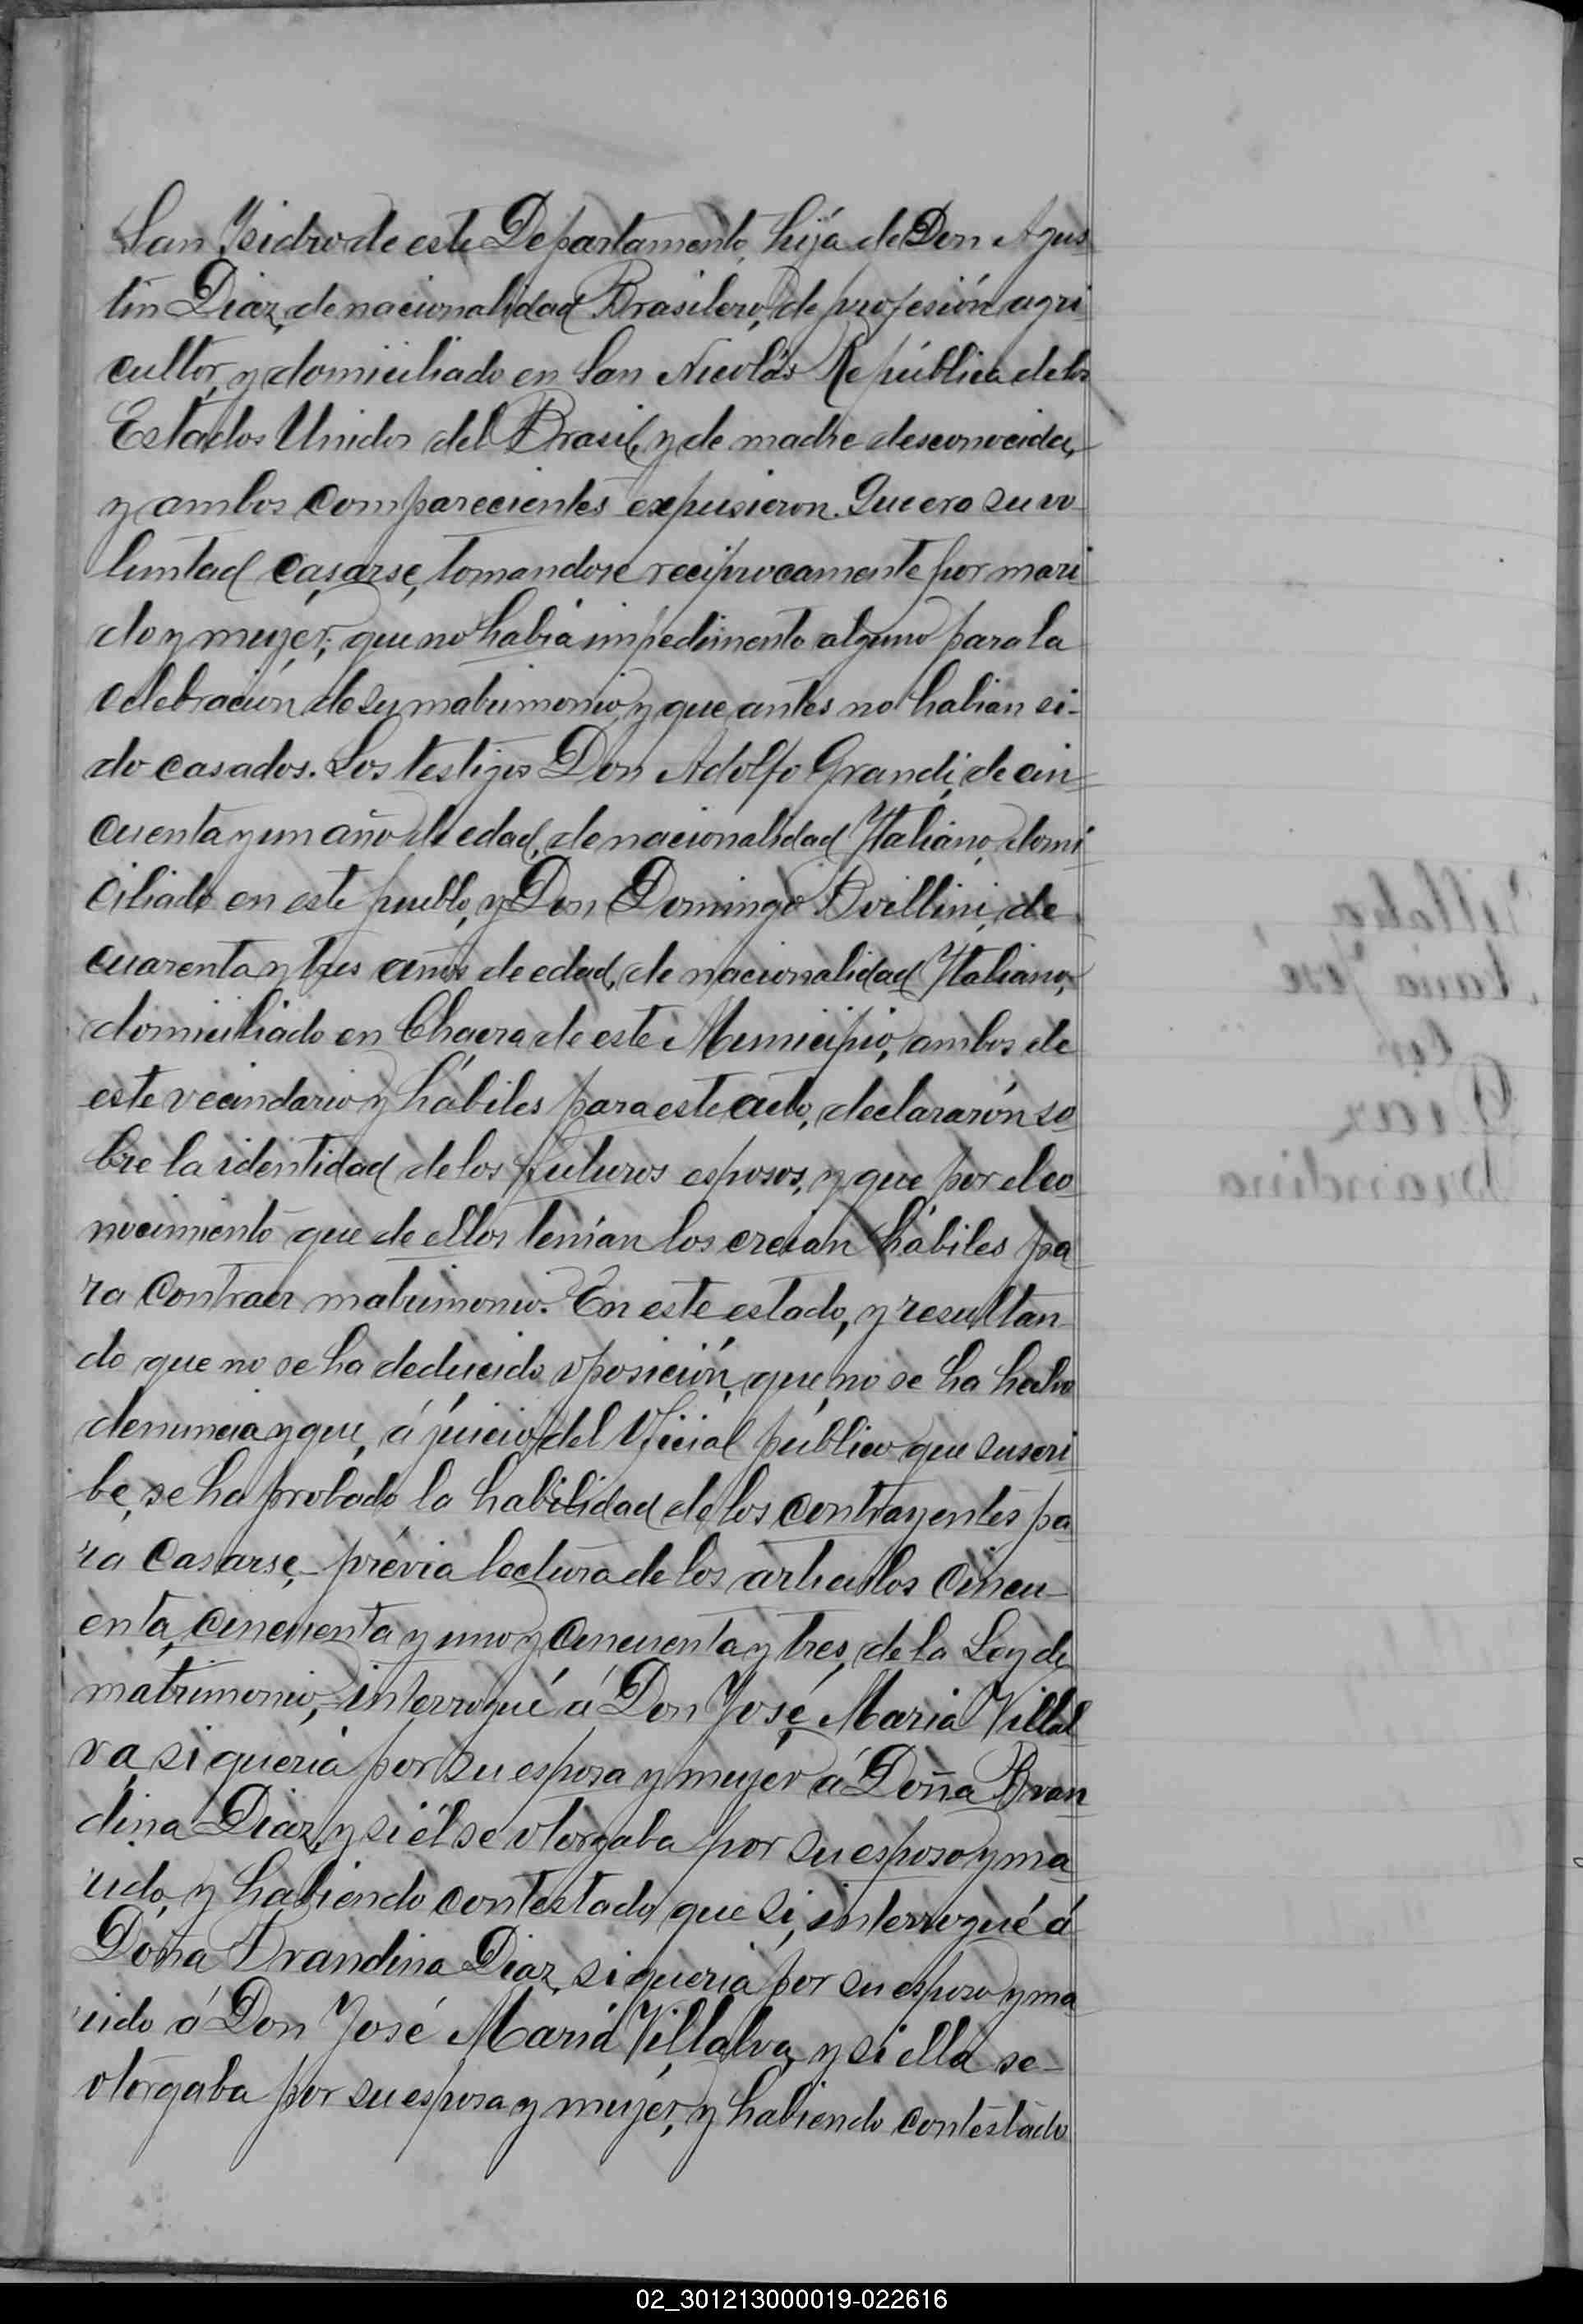 San Ysidro de este Departamento, hija de Don Agus
tin Diaz, de nacionalidad Brasilero, de profesión agri
cultor, y domiciliado en San Nicolás República de los
Estados Unidos del Brasil, y de madre desconocida,
y ambos comparecientes expusieron. Que era su vo-
luntad casarse, tomandose reciprocamente por mari
do y mujer; que no habia impedimento alguno para la
celebración de su matrimonio, y que antes no habian si-
do casados. Los testigos Don Adolfo Grandi, de cin-
cuenta y un año de edad, de nacionalidad Ytaliano, domi
ciliado en este pueblo, y Don Domingo Bvillini, de
cuarenta y tres años de edad, de nacionalidad Ytaliano,
domiciliado en Chacra de este Municipio, ambos de
este vecindario y hábiles para este acto, declararón so
bre la identidad de los futuros esposos, y que por el co
nocimiento que de ellos tenían los creian hábiles pa
ra contraer matrimonio. En este estado, y resultan-
do que no se ha deducido oposición, que no se ha hecho
denuncia y que, á juicio del Oficial público que suscri
be, se ha probado la habilidad de los contrayentes pa
ra casarse,- prévia lectura de los articulos cincu-
enta, cincuenta y uno y cincuenta y tres, de la Ley de
matrimonio,- interrogué á Don José Maria Villal
va, si queria por su esposa y mujer á Doña Bran
dina Diaz, y si él se otorgaba por su esposo y ma
rido, y habiendo contestado que si, interrogué á
Doña Brandina Diaz, si queria por su esposo y ma
rido á Don José Maria Villalva, y si ella se-
otorgaba por su esposa y mujer, y habiendo contestado
02_301213000019-022616